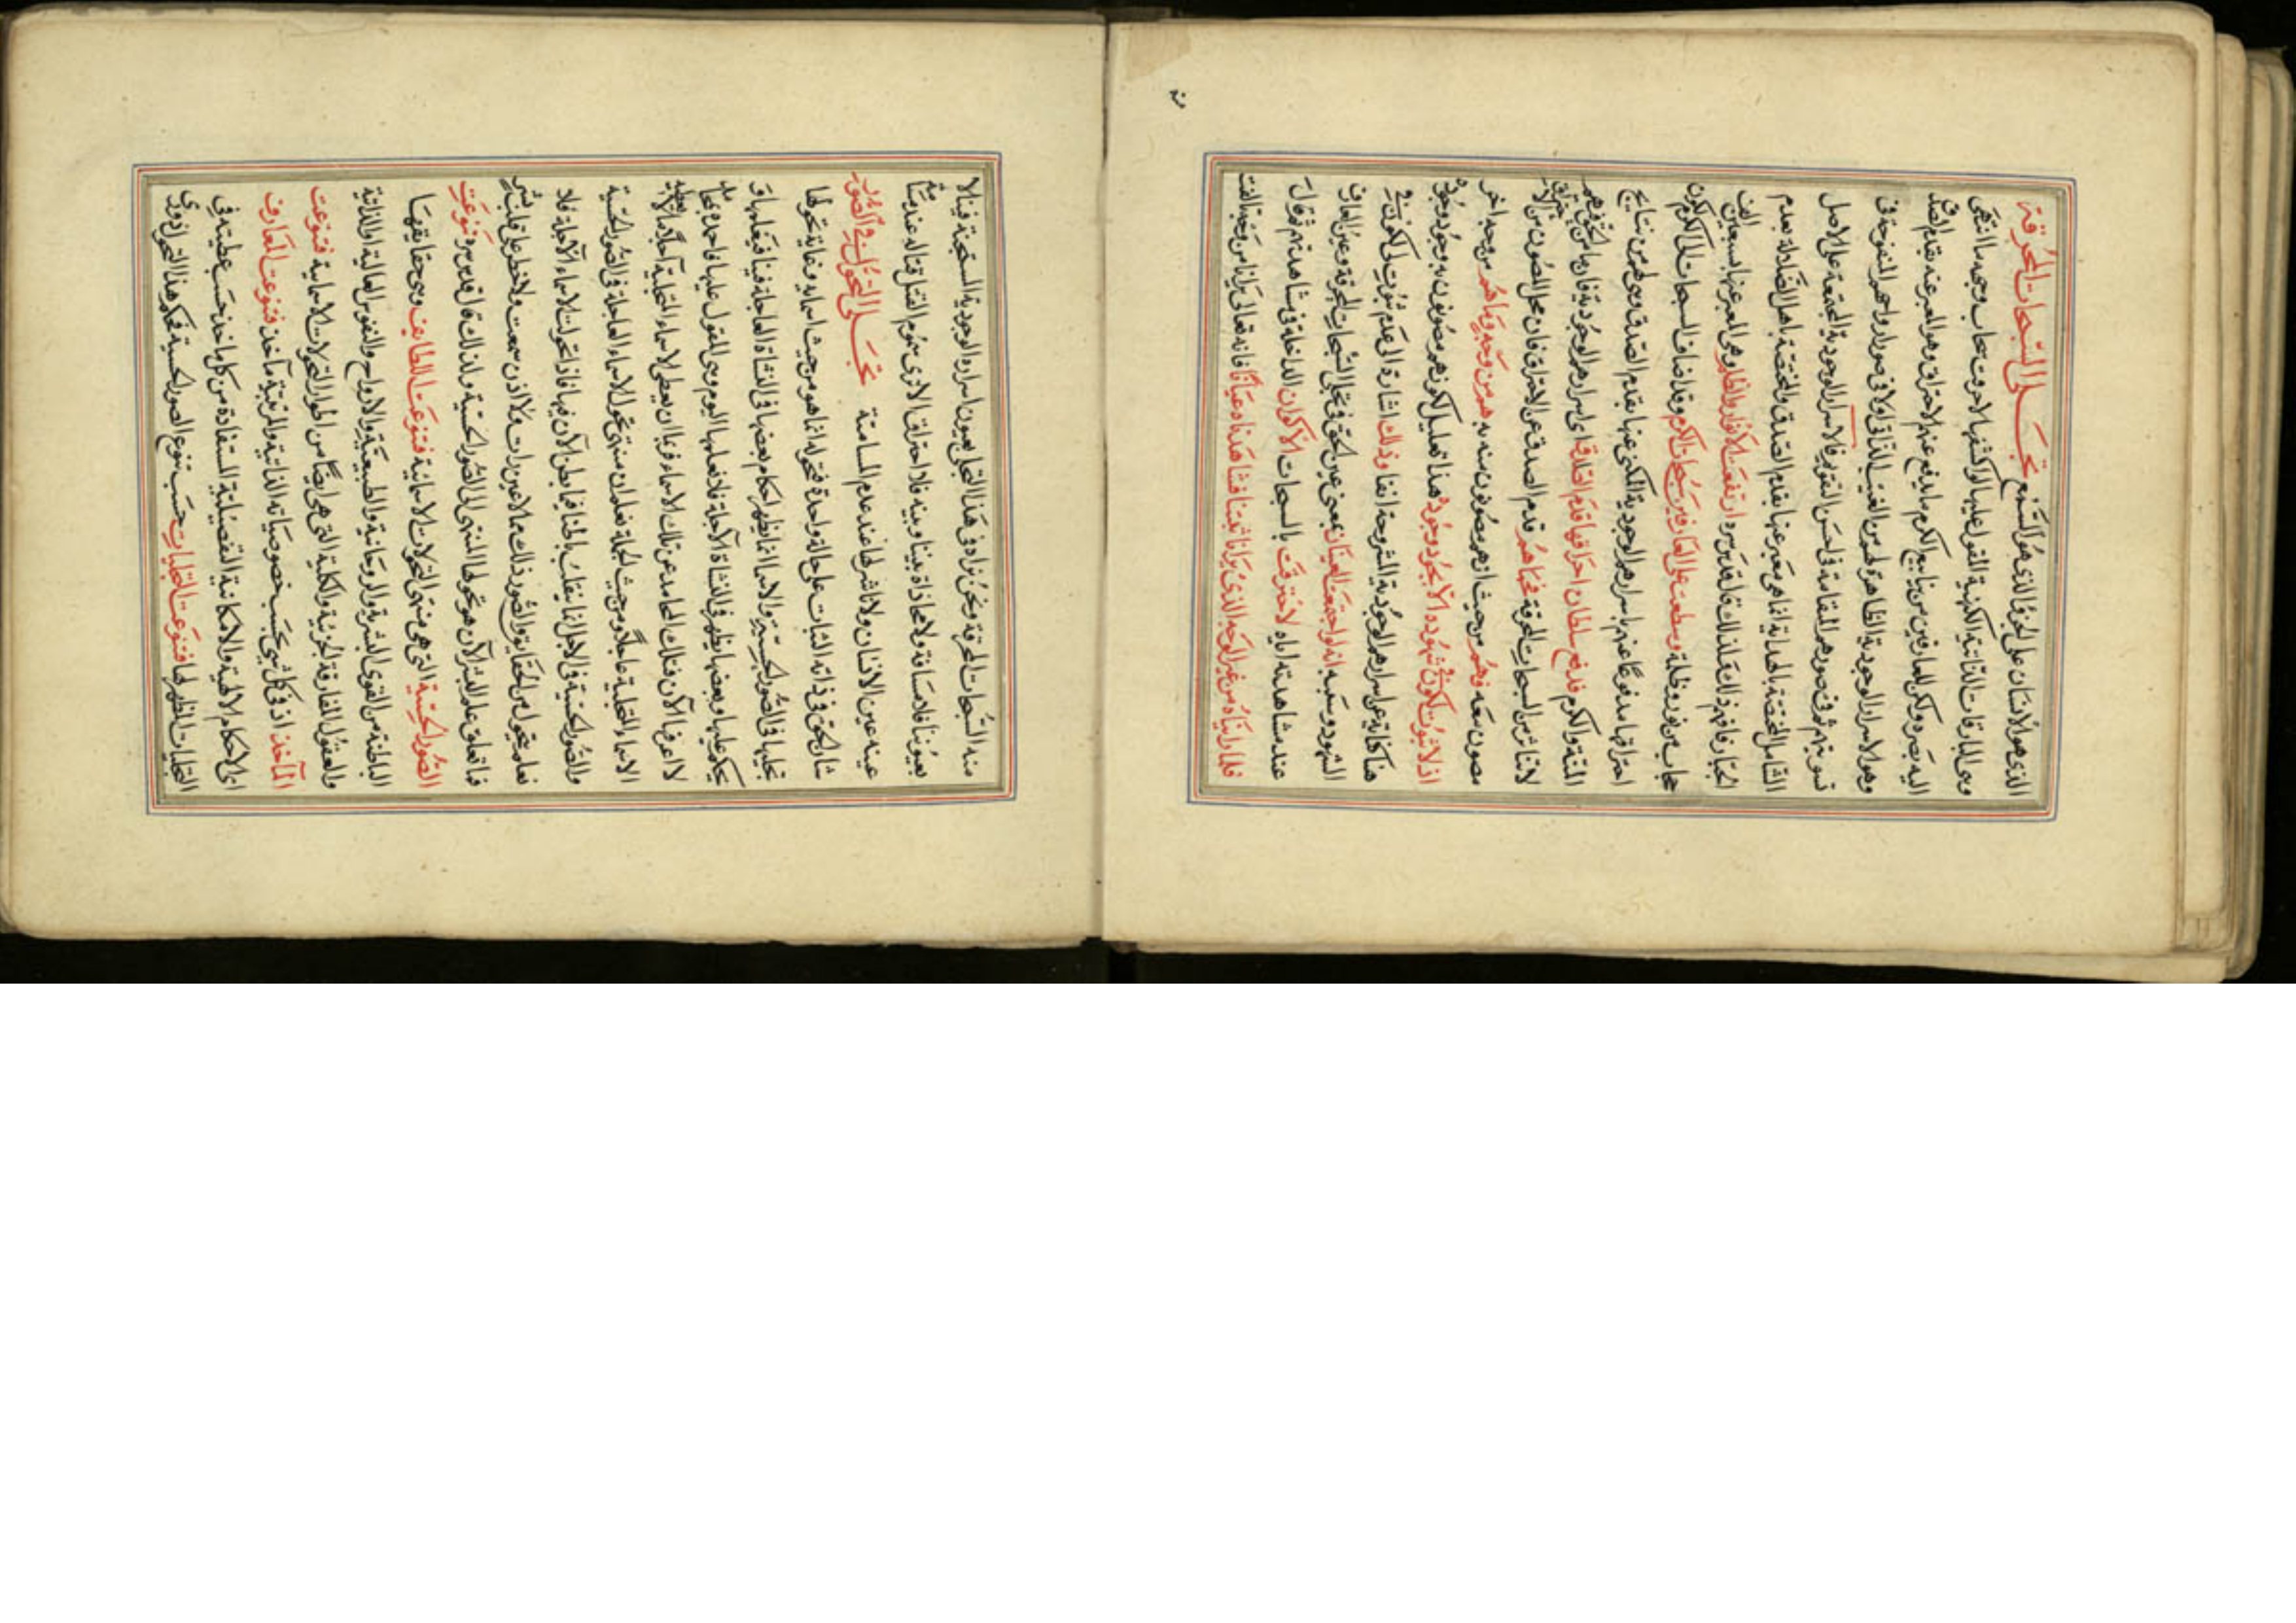 الذي هو الانسان على الجزؤ الذي هو السمع تجلى السبحات المحرقة
وهي البارقات الذاتية الكنهية المقول عليها لو كشفها لاحرقت سبحات وجهه ما انتهى
اليه بصره ولكن للعارفين من ينابيع الكرم ما يدفع عنهم الاحتراق وهو المعبر عنه بقدم الصدق
وهو الاسرار الوجودية الظاهرة لهم من الغيب الذاتي اولا في صور ارواحهم المنفوخة في
تسويتهم ثم في صورهم المقامة في احسن التقويم فالاسرار الوجودية المجتمعة على الاصل
الشامل المختصة بالهداية انما هي معبر عنها بقدم الصدق والمختصة باهل الضلالة بقدم
الجبار فافهم ذلك فلذلك قال قدس سره ارتفعت الانوار والظلم وهي المعبر عنها بسبعين الف
حجاب من نور وظلمة وسطعت على العارفين سبحات الكرم وقد اضاف السبحات الى الكرم لكون
احتراقها مدفوعا عنهم باسرارهم الوجودية المكنى عنها بقدم الصدق وهي لهم من نتايج
المنة والكرم فدفع سلطان احراقها قدم الصدق اي اسرارهم الوجودية فان ما من الحق فيهم
لا تتاثر من السبحات المحرقة فحماهم قدم الصدق عن الاحتراق فان محل المصون من
مصون معه فهم من حيث انهم مصونون منه به هم من وجه وما هم من وجه اخر
اذ لا ثبوت لكون في شهوده الا بجود وجوده هذا تعليل لكونهم مصونون به وجود وجوده
هنا كناية عن اسرارهم الوجودية المشروحة انفا وذلك اشارة الى عدم ثبوت لكون في
الشهود وسببه انه لو اجتمعت العينان يعني عين الحق في تجلى السبحات المحرقة وعين العارف
عند مشاهدته اياه لاحترقت بالسبحات الاكوان الداخلة في مشاهدته ثم قال
فلما رايناه من غير الوجه الذي يرانا ثبتنا فشاهدناه عيانا فانه تعالى يرانا من وجه
منه السبحات المحرقة ونحن نراه في هذا التجلي بعيون اسراره الوجودية السبحية فينا لا
بعيوننا فلا مسافة ولا محاذاة بيننا وبينه فلا احتراق الا ترى سموم القتال قتاله عند مماسة
عينه عين الانسان ولا تاثير لها عند عدم المسامتة تجلى التحول في الصور
شان الحق في ذاته الثبات على حالة واحدة فتحوله انما هو من حيث اسمايه وغاية تحولها
تجليها في الصور الحسية والاسما انما يظهر احكام بعضها في النشاة العاجلة فينا فيغلبها
يحكم عليها وبعضها يظهر في النشاة الآجلة فلا نعلمها اليوم وهي المقول عليها فاحمده بمحامد
لا اعرفها الآن فتلك المحامد عن تلك الاسماء فربما ان يعطي الاسماء المتجلية آجلا ما لا يعطيه
الاسماء المتجلية عاجلا ومن حيث الجملة نعلم ان منتهى تحول الاسماء العاجلة في الصور الحسية
والصور الحسية في الاجل انما ينقلب الى هنا فيما بطن الآن فيها فاذا تحولت الاسماء الآجلة فلا
نعلم بتحول من الحقايق والصور ذلك مما لا عين رات ولا اذن سمعت ولا خطر على قلب بشر
فما تعلق علم البشر الآن هو تحولها المنتهى الى الصور الحسية ولذلك قال قدس سره تنوعت
الصور الحسية التي هي منتهى التحولات الاسمائية فتنوعت اللطايف وهي حقايقها
الباطنة من القوى البشرية والروحانية والطبيعية والارواح والنفوس العالية والذاتية
والعقول المفارقة الجزئية والكلية التي هي ايضا من اطوار التحولات الاسمائية فتنوعت
المآخذ اذ في كل شيء بحسب خصوصياته الذاتية والمرتبية مآخذ فتنوعت المعارف
اي الاحكام الالهية والامكانية التفصيلية المستفادة من كل ماخذ بحسب عطيته في
التجليات المظهر لها فتنوعت التجليات حسب تنوع الصور الحسية فحكم هذا التحول دوري